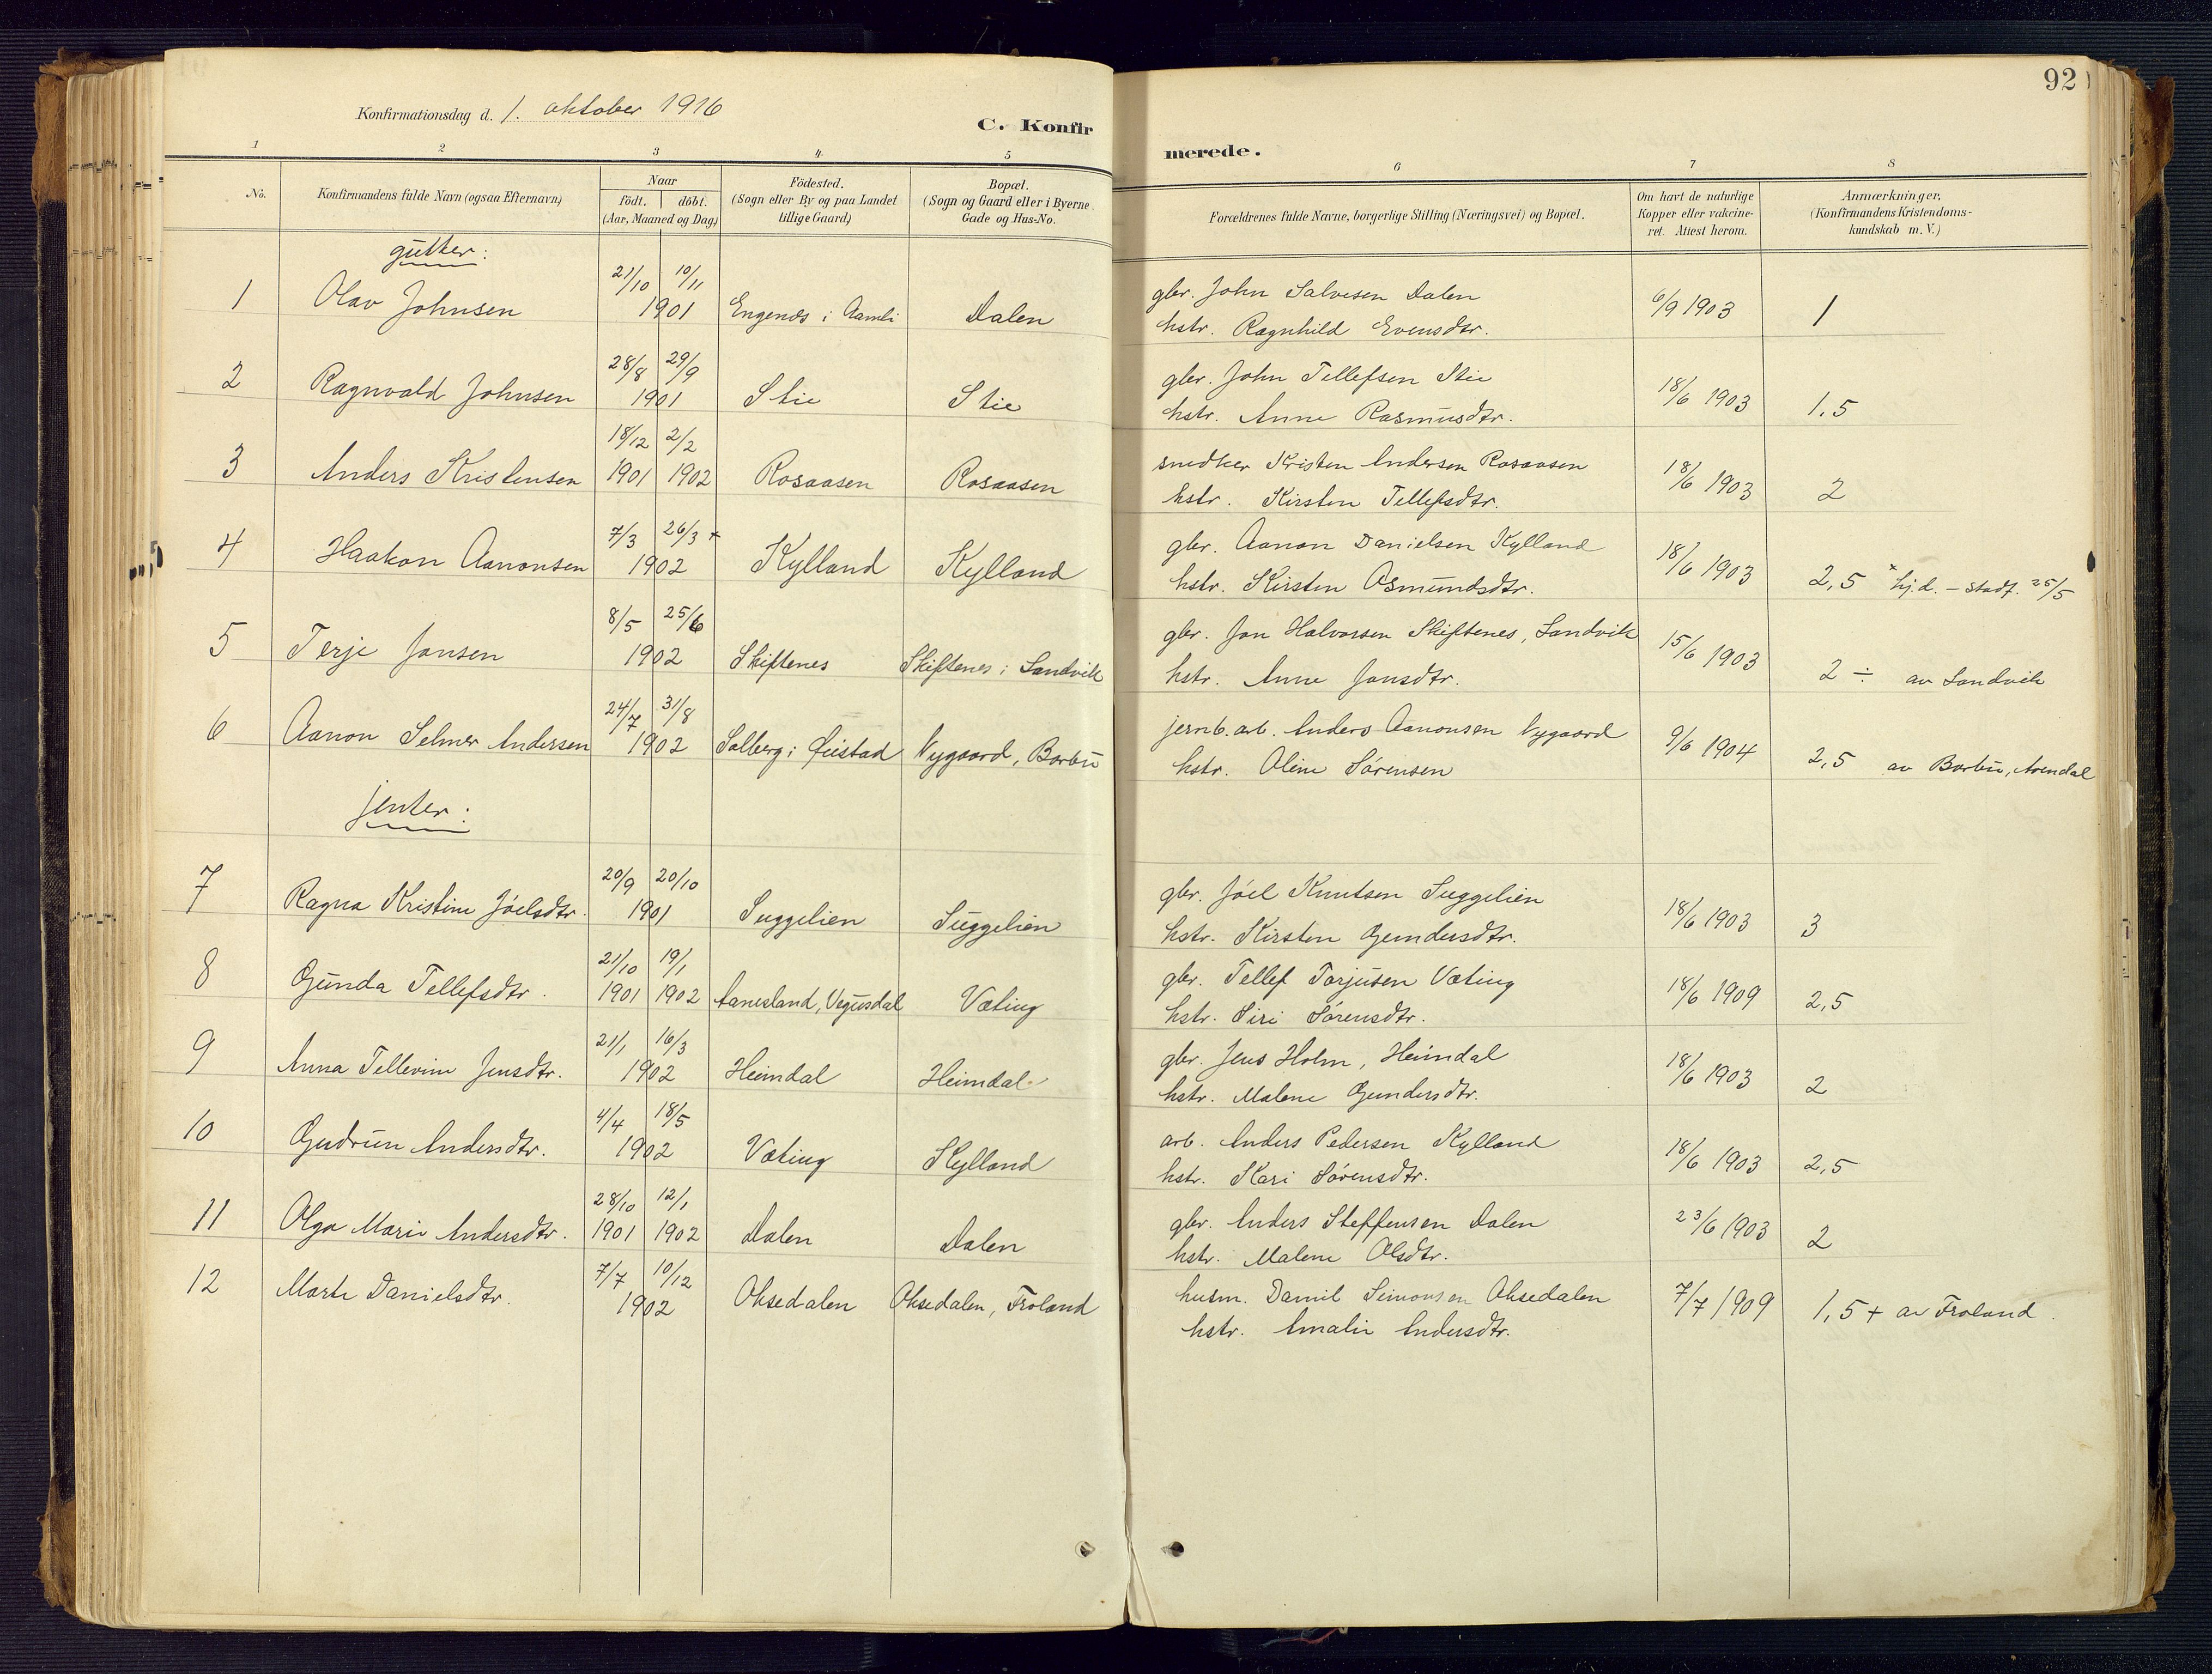 92
Konfirmationsdag d. 1. oktober 1916
C. Konfirmerede.
1 2 3 4. 5 6 7 8
No. Konfirmandens fulde Navn (ogsaa Efternavn) Naar födt. döbt. (Aar, Maaned og Dag) Födested. (Sogn eller By og paa Landet tillige Gaard) Bopæl. (Sogn og Gaard eller i Byerne Gade og Hus-No. Forældrenes fulde Navne, borgerlige Stilling (Næringsvei) og Bopæl. Om havt de naturlige Kopper eller vakcineret. Attest herom. Anmærkninger, (Konfirmandens Kristendomskundskab m. V.)
gutter:
1 Olav Johnsen 21/10 10/11 1901 Engenes i Aamli Dalen gbr. John Salvesen Dalen 6/9 1903 1
hstr. Ragnhild Evensdtr.
2 Ragnvald Johnsen 28/8 29/9 1901 Stie Stie gbr. John Tellefsen Stie 18/6 1903 1,5
hstr. Anne Rasmusdtr.
3 Anders Kristensen 18/12 1901 2/2 1902 Rosaasen Rosaasen snedker Kristen Andersen Rosaasen 18/6 1903 2
hstr. Kirsten Tellefsdtr.
4 Haakon Aanonsen 7/3 26/3 + 1902 Kylland Kylland gbr. Aanon Danielsen Kylland 18/6 1903 2,5 + hj.d. – stadf. 25/5
hstr. Kirsten Osmundsdtr.
5 Terje Jansen 8/5 25/6 1902 Skiftenes Skiftenes i Landvik gbr. Jan Halvorsen Skiftenes, Landvik 15/6 1903 2 ÷ av Landvik
hstr. Anne Jansdtr.
6 Aanon Selmer Andersen 24/7 31/8 1902 Solberg i Øiestad Nygaard, Barbu jernb. arb. Anders Aanonsen Nygaard 9/6 1904 2,5 av Barbu, Arendal
hstr. Oline Sørensen
jenter:
7 Ragna Kristine Jóelsdtr. 20/9 20/10 1901 Suggelien Suggelien gbr. Jóel Knutsen Suggelien 18/6 1903 3
hstr. Kirsten Gundersdtr.
8 Gunda Tellefsdtr. 21/10 1901 19/1 1902 Aanesland, Vegusdal Væting gbr. Tellef Torjusen Væting 18/6 1909 2,5
hstr. Siri Sørensdtr.
9 Anna Tellevine Jensdtr. 21/1 16/3 1902 Heimdal Heimdal gbr. Jens Holm, Heimdal 18/6 1903 2
hstr. Malene Gundersdtr.
10 Gudrun Andersdtr. 4/4 18/5 1902 Væting Kylland arb. Anders Pedersen Kylland 18/6 1903 2,5
hstr. Kari Sørensdtr.
11 Olga Marie Andersdtr. 28/10 1901 12/1 1902 Dalen Dalen gbr. Anders Steffensen Dalen 23/6 1903 2
hstr. Malene Olsdtr.
12 Marte Danielsdtr. 7/7 10/12 1902 Oksedalen Oksedalen, Froland husm. Daniel Simonsen Oksedalen 7/7 1909 1,5 + av Froland.
hstr. Amalie Andersdtr.